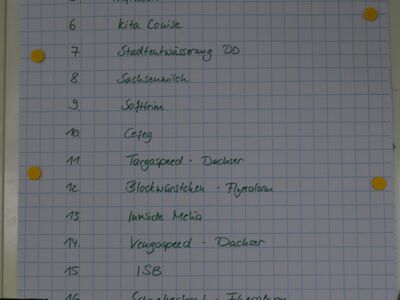 6 Kita Louise
7 Stadtentwässerung DD
8 Sachsenmilch
9. Softtrim
10. Cefeg
11. Targaspeed - Dachser
12. Blockwürstchen - Flyeralarm
13 Innside Melia
14. Vengaspeed - Dachser
15. ISB
16.